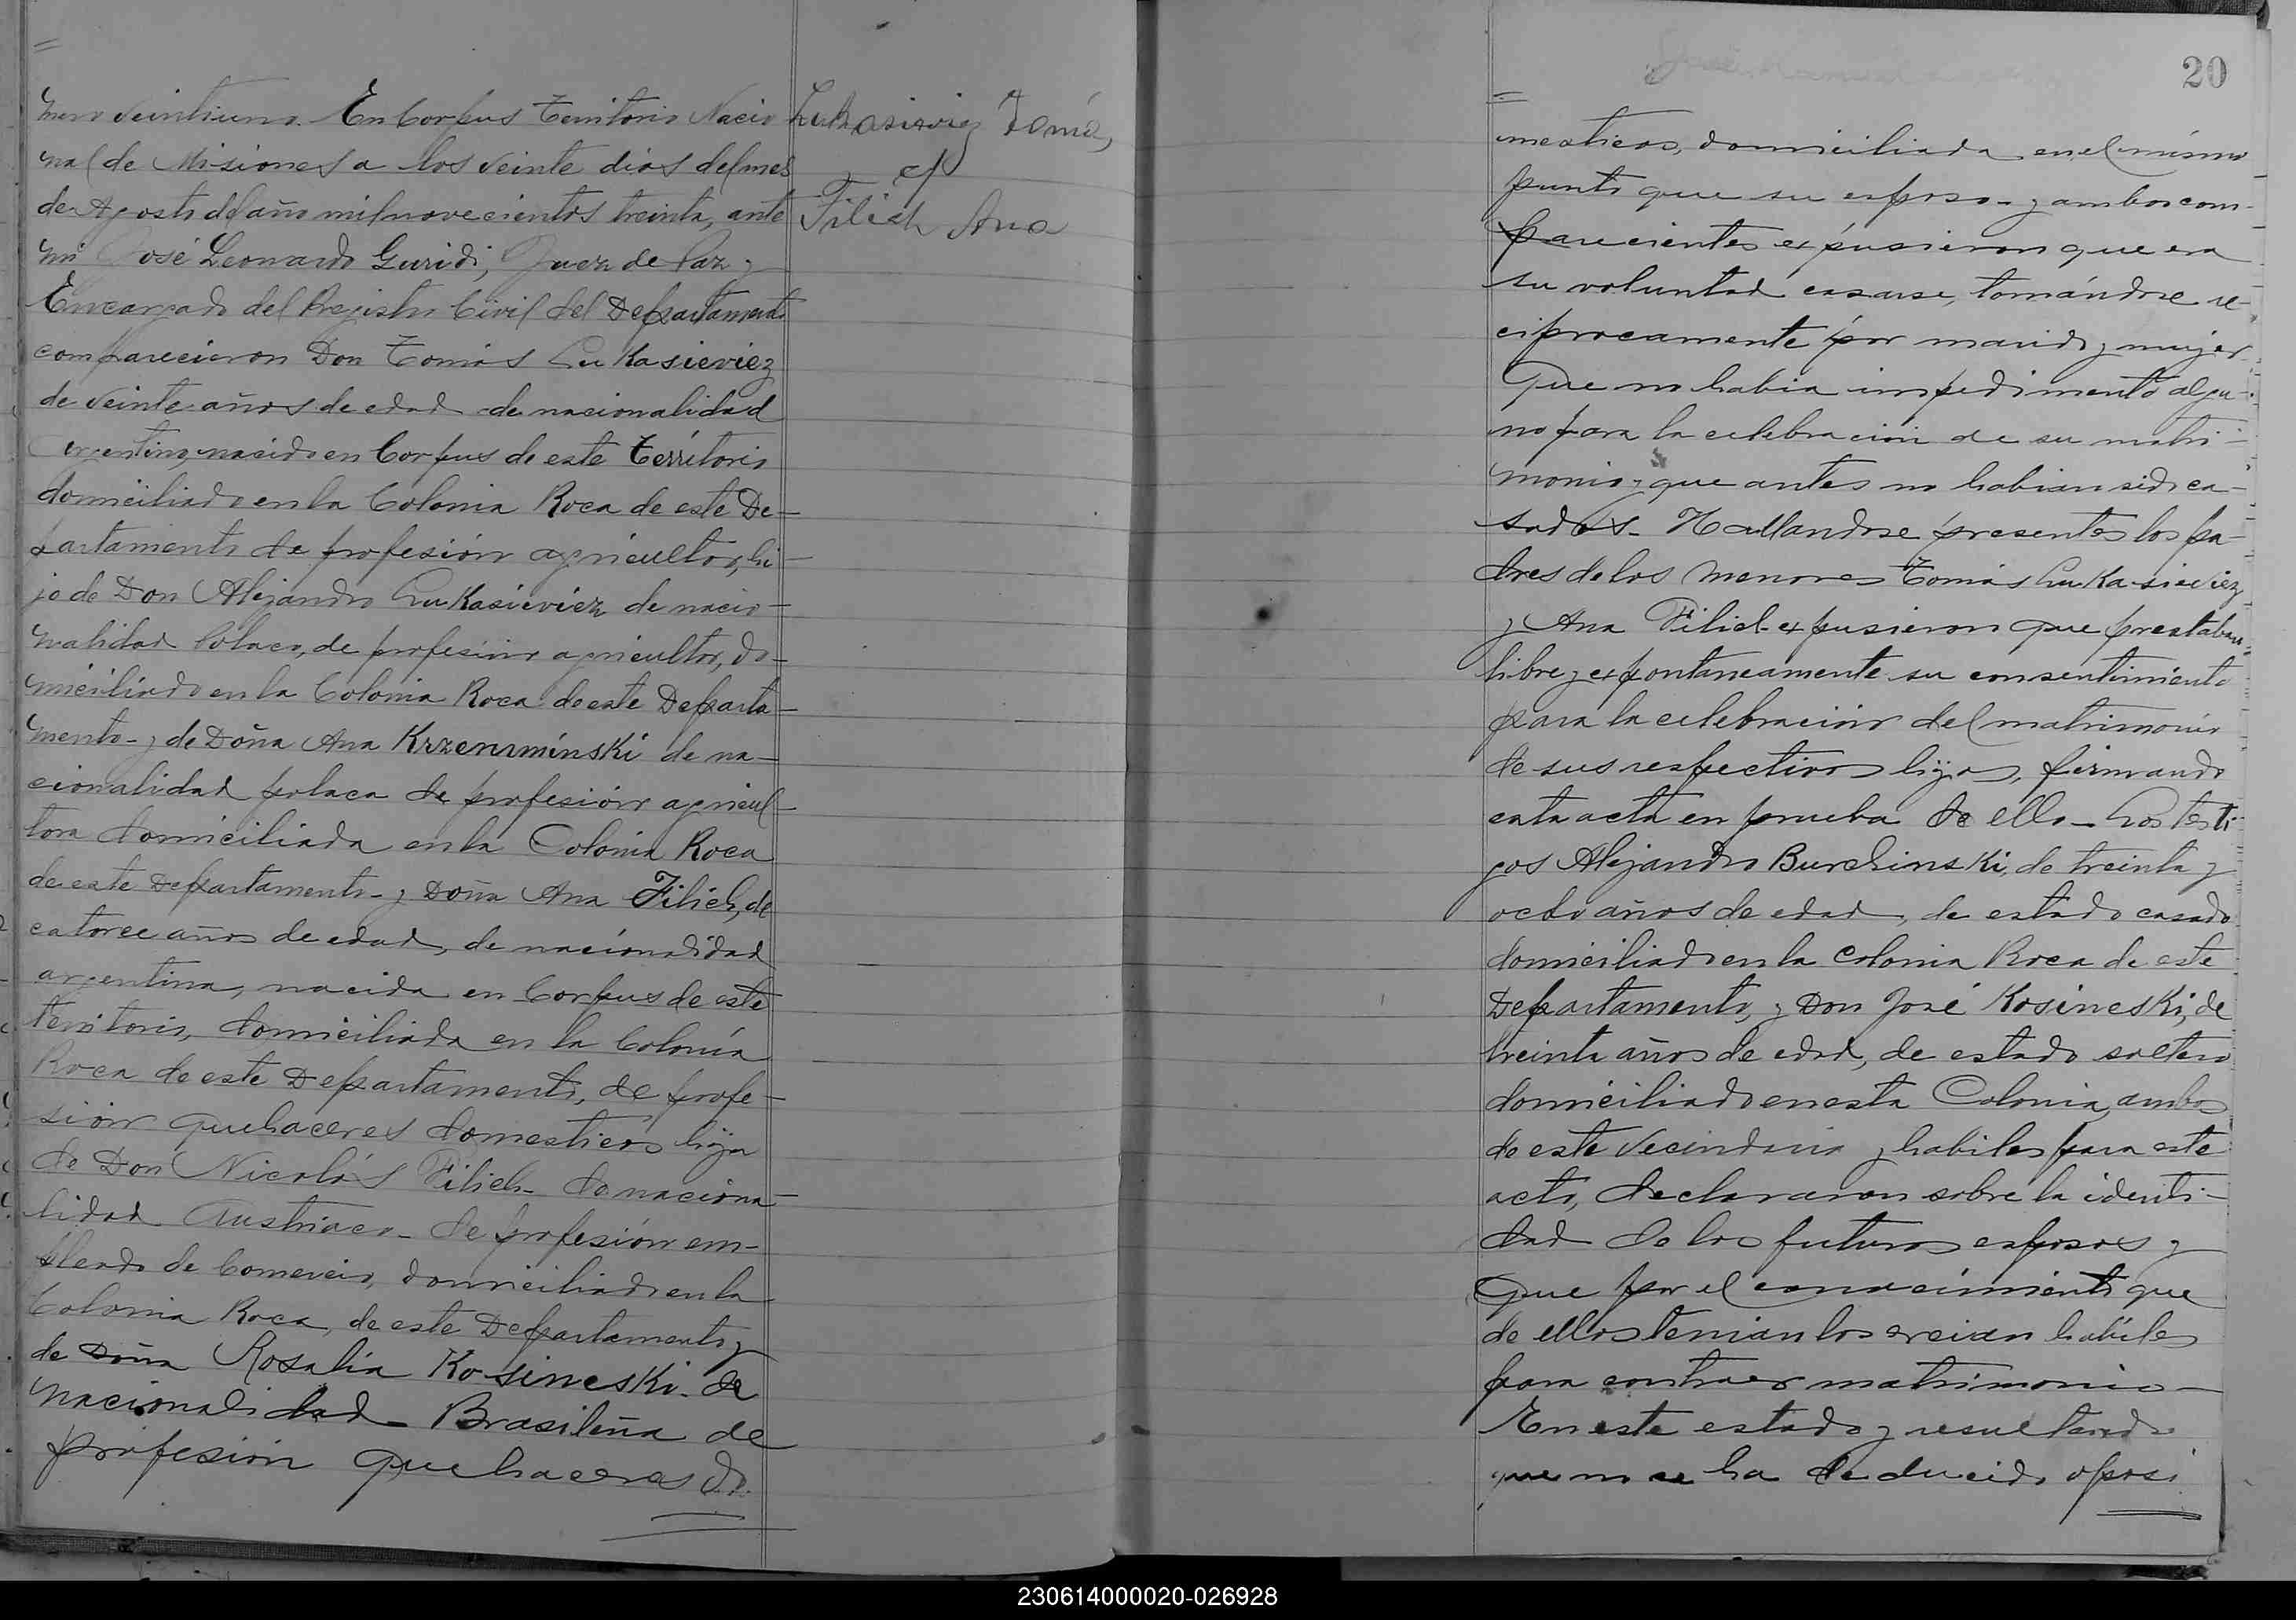 mero veintiuno. En Corpus Territorio Nacio
nal de Misiones a los veinte dias del mes
de Agosto del año mil novecientos treinta, ante
mi José Leonardo Guridi, Juez de Paz y
Encargado del Registro Civil del Departamento
comparecieron Don Tomás Lukasieviez
de veinte años de edad de nacionalidad
argentino, nacido en Corpus de este Territorio
domiciliado en la Colonia Roca de este De-
partamento de profesión agricultor, hi-
jo de Don Alejandro Lukasieviez de nacio-
nalidad Polaco, de profesión agricultor, do-
miciliado en la Colonia Roca de este Departa-
mento- y de Doña Ana Krzenuminski de na-
cionalidad polaca de profesión agricul-
tora domiciliada en la Colonia Roca
de este Departamento- y Doña Ana Filich, de
catorce años de edad, de nacionalidad
argentina, nacida en Corpus de este
territorio, domiciliada en la Colonia
Roca de este Departamento, de profe-
sión quehaceres domesticos hija
de Don Nicolás Filich- de naciona-
lidad Austriaco- de profesión em-
pleado de Comercio, domiciliado en la
Colonia Roca, de este Departamento y
de Doña Rosalía Kosineski- de
nacionalidad- Brasileña de
profesión quehaceres do
Lukasieviez Tomás
c/
Filich Ana
20
mesticos, domiciliada en el mismo
punto que su esposo- y ambos com-
parecientes expusieron que era
su voluntad casarse, tomándose re-
ciprocamente por marido y mujer
Que no habia impedimento algu-
no para la celebración de su matri-
monio y que antes no habian sido ca-
sados- Hallandose presentes los pa-
dres de los menores Tomás Lukasieviez
y Ana Filich- expusieron que prestaban
libre y expontaneamente su consentimiento
para la celebración del matrimonio
de sus respectivos hijos, firmando
esta acta en prueba de ello- Los testi-
gos Alejandro Burchinski, de treinta y
ocho años de edad, de estado casado
domiciliado en la Colonia Roca de este
Departamento, y Don José Kosineski, de
treinta años de edad, de estado soltero
domiciliado en esta Colonia, ambos
de este vecindario y habiles para este
acto, declararon sobre la identi-
dad de los futuros esposos y
que por el conocimiento que
de ellos tenian los creian habiles
para contraer matrimonio-
En este estado y resultando
que no se ha deducido oposi
230614000020-026928